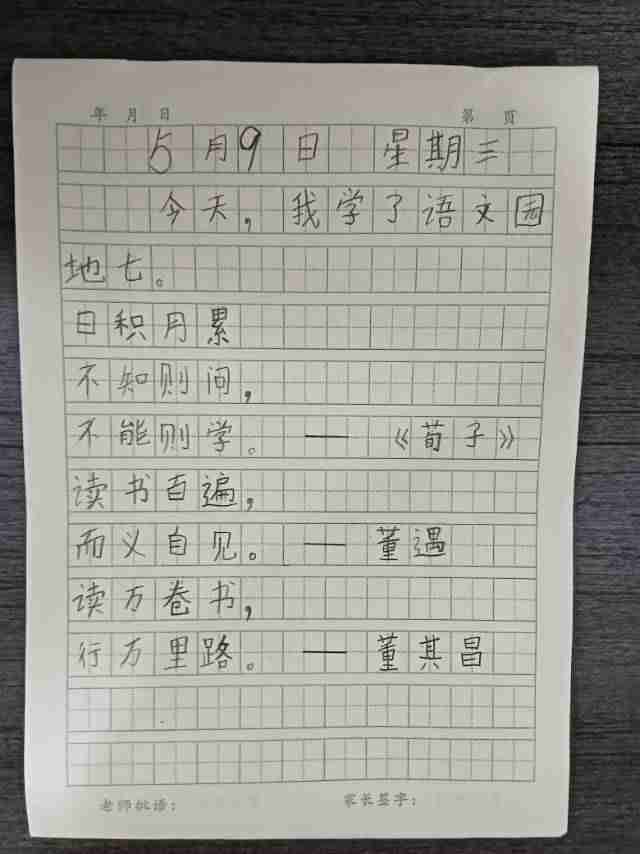 年 月 日 第 页
5月9日 星期三
今天，我学了语文园
地七。
日积月累
不知则问，
不能则学。——《荀子》
读书百遍，
而义自见。——董遇
读万卷书，
行万里路。——董其昌
老师批语： 家长签字：